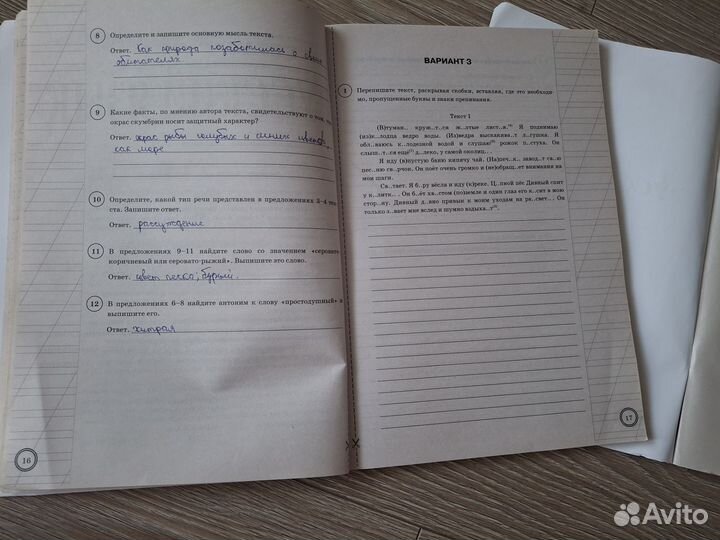 8 Определите и запишите основную мысль текста.
Ответ. Как природа позаботилась о своих
обитателях
9 Какие факты, по мнению автора текста, свидетельствуют о том, что
окрас скумбрии носит защитный характер?
Ответ. окрас рыбы голубых и синих цветов,
как море
10 Определите, какой тип речи представлен в предложениях 3–4
ста. Запишите ответ.
Ответ. рассуждение
11 В предложениях 9–11 найдите слово со значением «серовато-
коричневый или серовато-рыжий». Выпишите это слово.
Ответ. цвет песка, бурый.
12 В предложениях 6–8 найдите антоним к слову «простодушный» и
выпишите его.
Ответ. хитрая
16
ВАРИАНТ 3
1 Перепишите текст, раскрывая скобки, вставляя, где это необходи-
мо, пропущенные буквы и знаки препинания.
Текст 1
(В)туман.. круж..т..ся ж..лтые лист..я.(4) Я поднимаю
(из)к..лодца ведро воды. (Из)ведра выскакива..т л..гушка. Я
обл..ваюсь к..лодезной водой и слушаю(2) рожок п..стуха. Он
слыш..т..ся ещё(1) д..леко, у самой околиц...
Я иду (в)пустую баню кипячу чай. (На)печ..к.. завод..т св..ю
пес..ню св..рчок. Он поёт очень громко и (не)обращ..ет внимания на
мои шаги.
Св..тает. Я б..ру вёсла и иду (к)реке. Ц..пной пёс Дивный спит
у к..литк... Он б..ёт хв..стом (по)земле и один глаз его к..сит в мою
стор..ну. Дивный д..вно привык к моим уходам на ра..свет... Он
только з..вает мне вслед и шумно вздыха..т
17
Avito